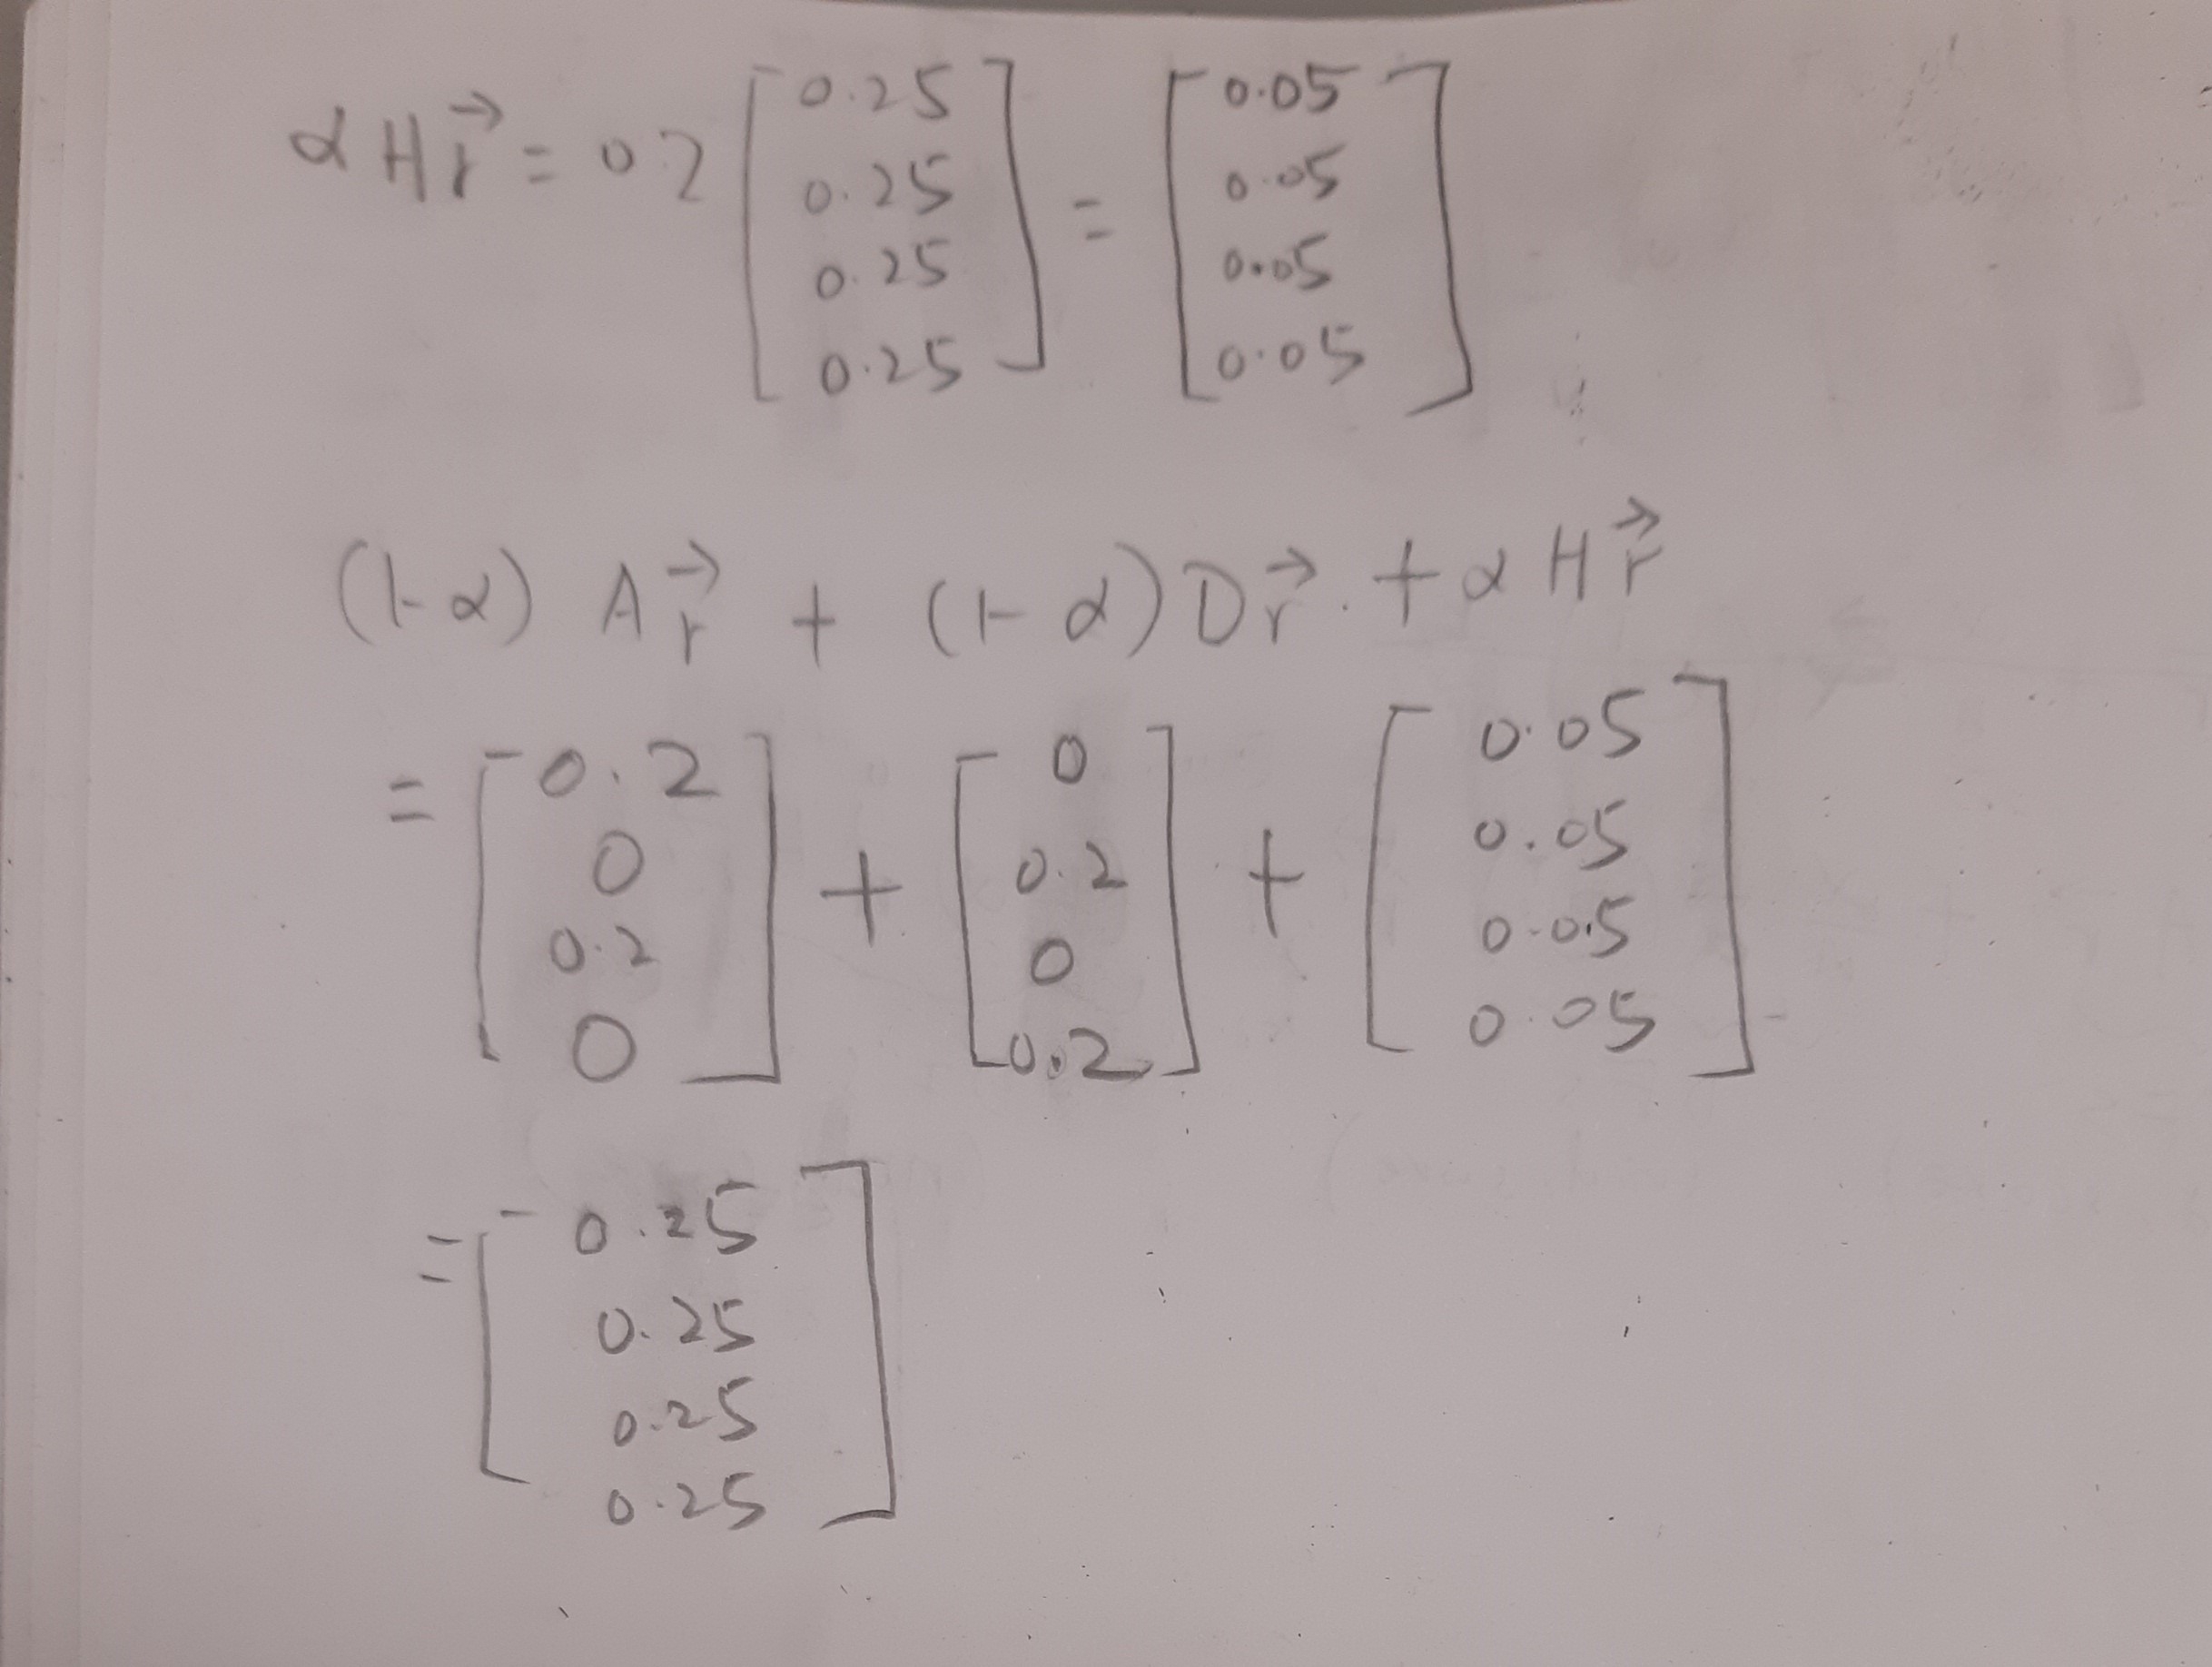 α H r⃗ = 0.2 [0.25 0.25 0.25 0.25] = [0.05 0.05 0.05 0.05]
(1-α) A r⃗ + (1-α) D r⃗ + α H r⃗
= [0.2 0 0.2 0] + [0 0.2 0 0.2] + [0.05 0.05 0.05 0.05]
= [0.25 0.25 0.25 0.25]